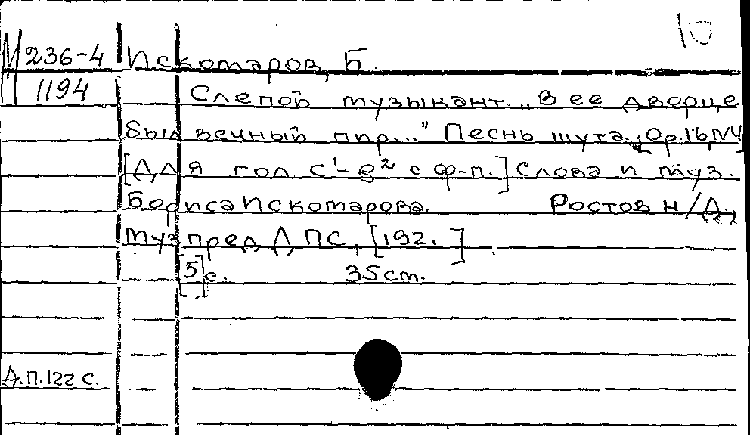 10
М 236-4 Искомаров, Б.
1194 Слепой музыкант. „В ее дворце
был вечный пир..." Песнь шута. Ор. 16, №4
[Для гол. c¹-g² с ф-п.] Слова и муз.
Бориса Искомарова. Ростов н/Д.,
Муз пред. Л.ПС, [192. ]
[5] с. 35 cm.
Д.П. 122 с.